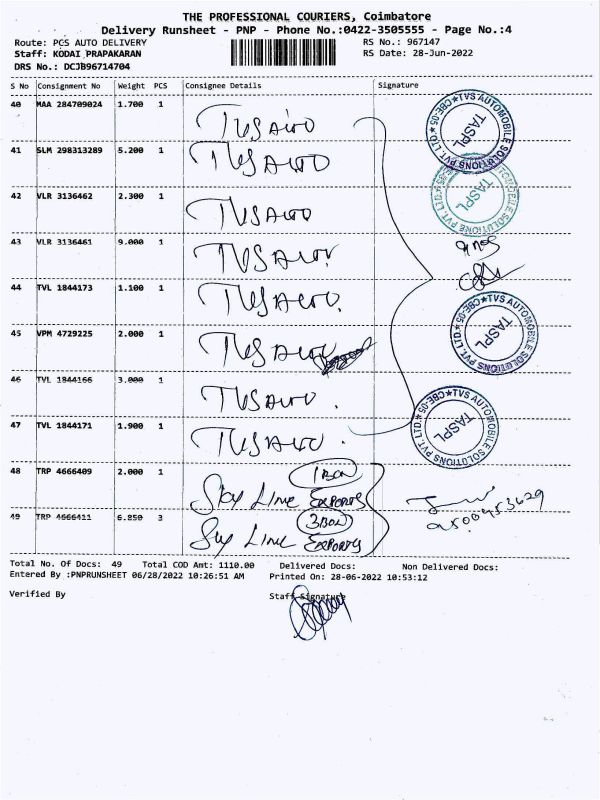 THE PROFESSIONAL COURIERS, Coimbatore
Delivery Runsheet - PNP - Phone No.:0422-3505555 - Page No.:4
Route: PCS AUTO DELIVERY
RS No.: 967147
Staff: KODAI PRAPAKARAN
RS Date: 28-Jun-2022
DRS No.: DCJB96714704
S No Consignment No Weight PCS Consignee Details Signature
40 MAA 284709024 1.700 1 TVS AUTO
41 SLM 298313289 5.200 1 TVS AUTO
42 VLR 3136462 2.300 1 TVS AUTO
43 VLR 3136461 9.000 1 TVS AUTO
44 TVL 1844173 1.100 1 TVS AUTO
45 VPM 4729225 2.000 1 TVS AUTO
46 TVL 1844166 3.000 1 TVS AUTO
47 TVL 1844171 1.900 1 TVS AUTO
TVS AUTOMOBILE SOLUTIONS PVT. LTD. CBE-05
TASPL
TASPL
TVS AUTOMOBILE SOLUTIONS PVT. LTD. CBE-05
TASPL
TVS AUTOMOBILE SOLUTIONS PVT. LTD. CBE-05
TASPL
48 TRP 4666409 2.000 1 Sky Line Exports 1 Box
49 TRP 4666411 6.850 3 Sky Line Exports 3 Box
Total No. Of Docs: 49 Total COD Amt: 1110.00 Delivered Docs: Non Delivered Docs:
Entered By :PNPRUNSHEET 06/28/2022 10:26:51 AM Printed On: 28-06-2022 10:53:12
Verified By Staff Signature